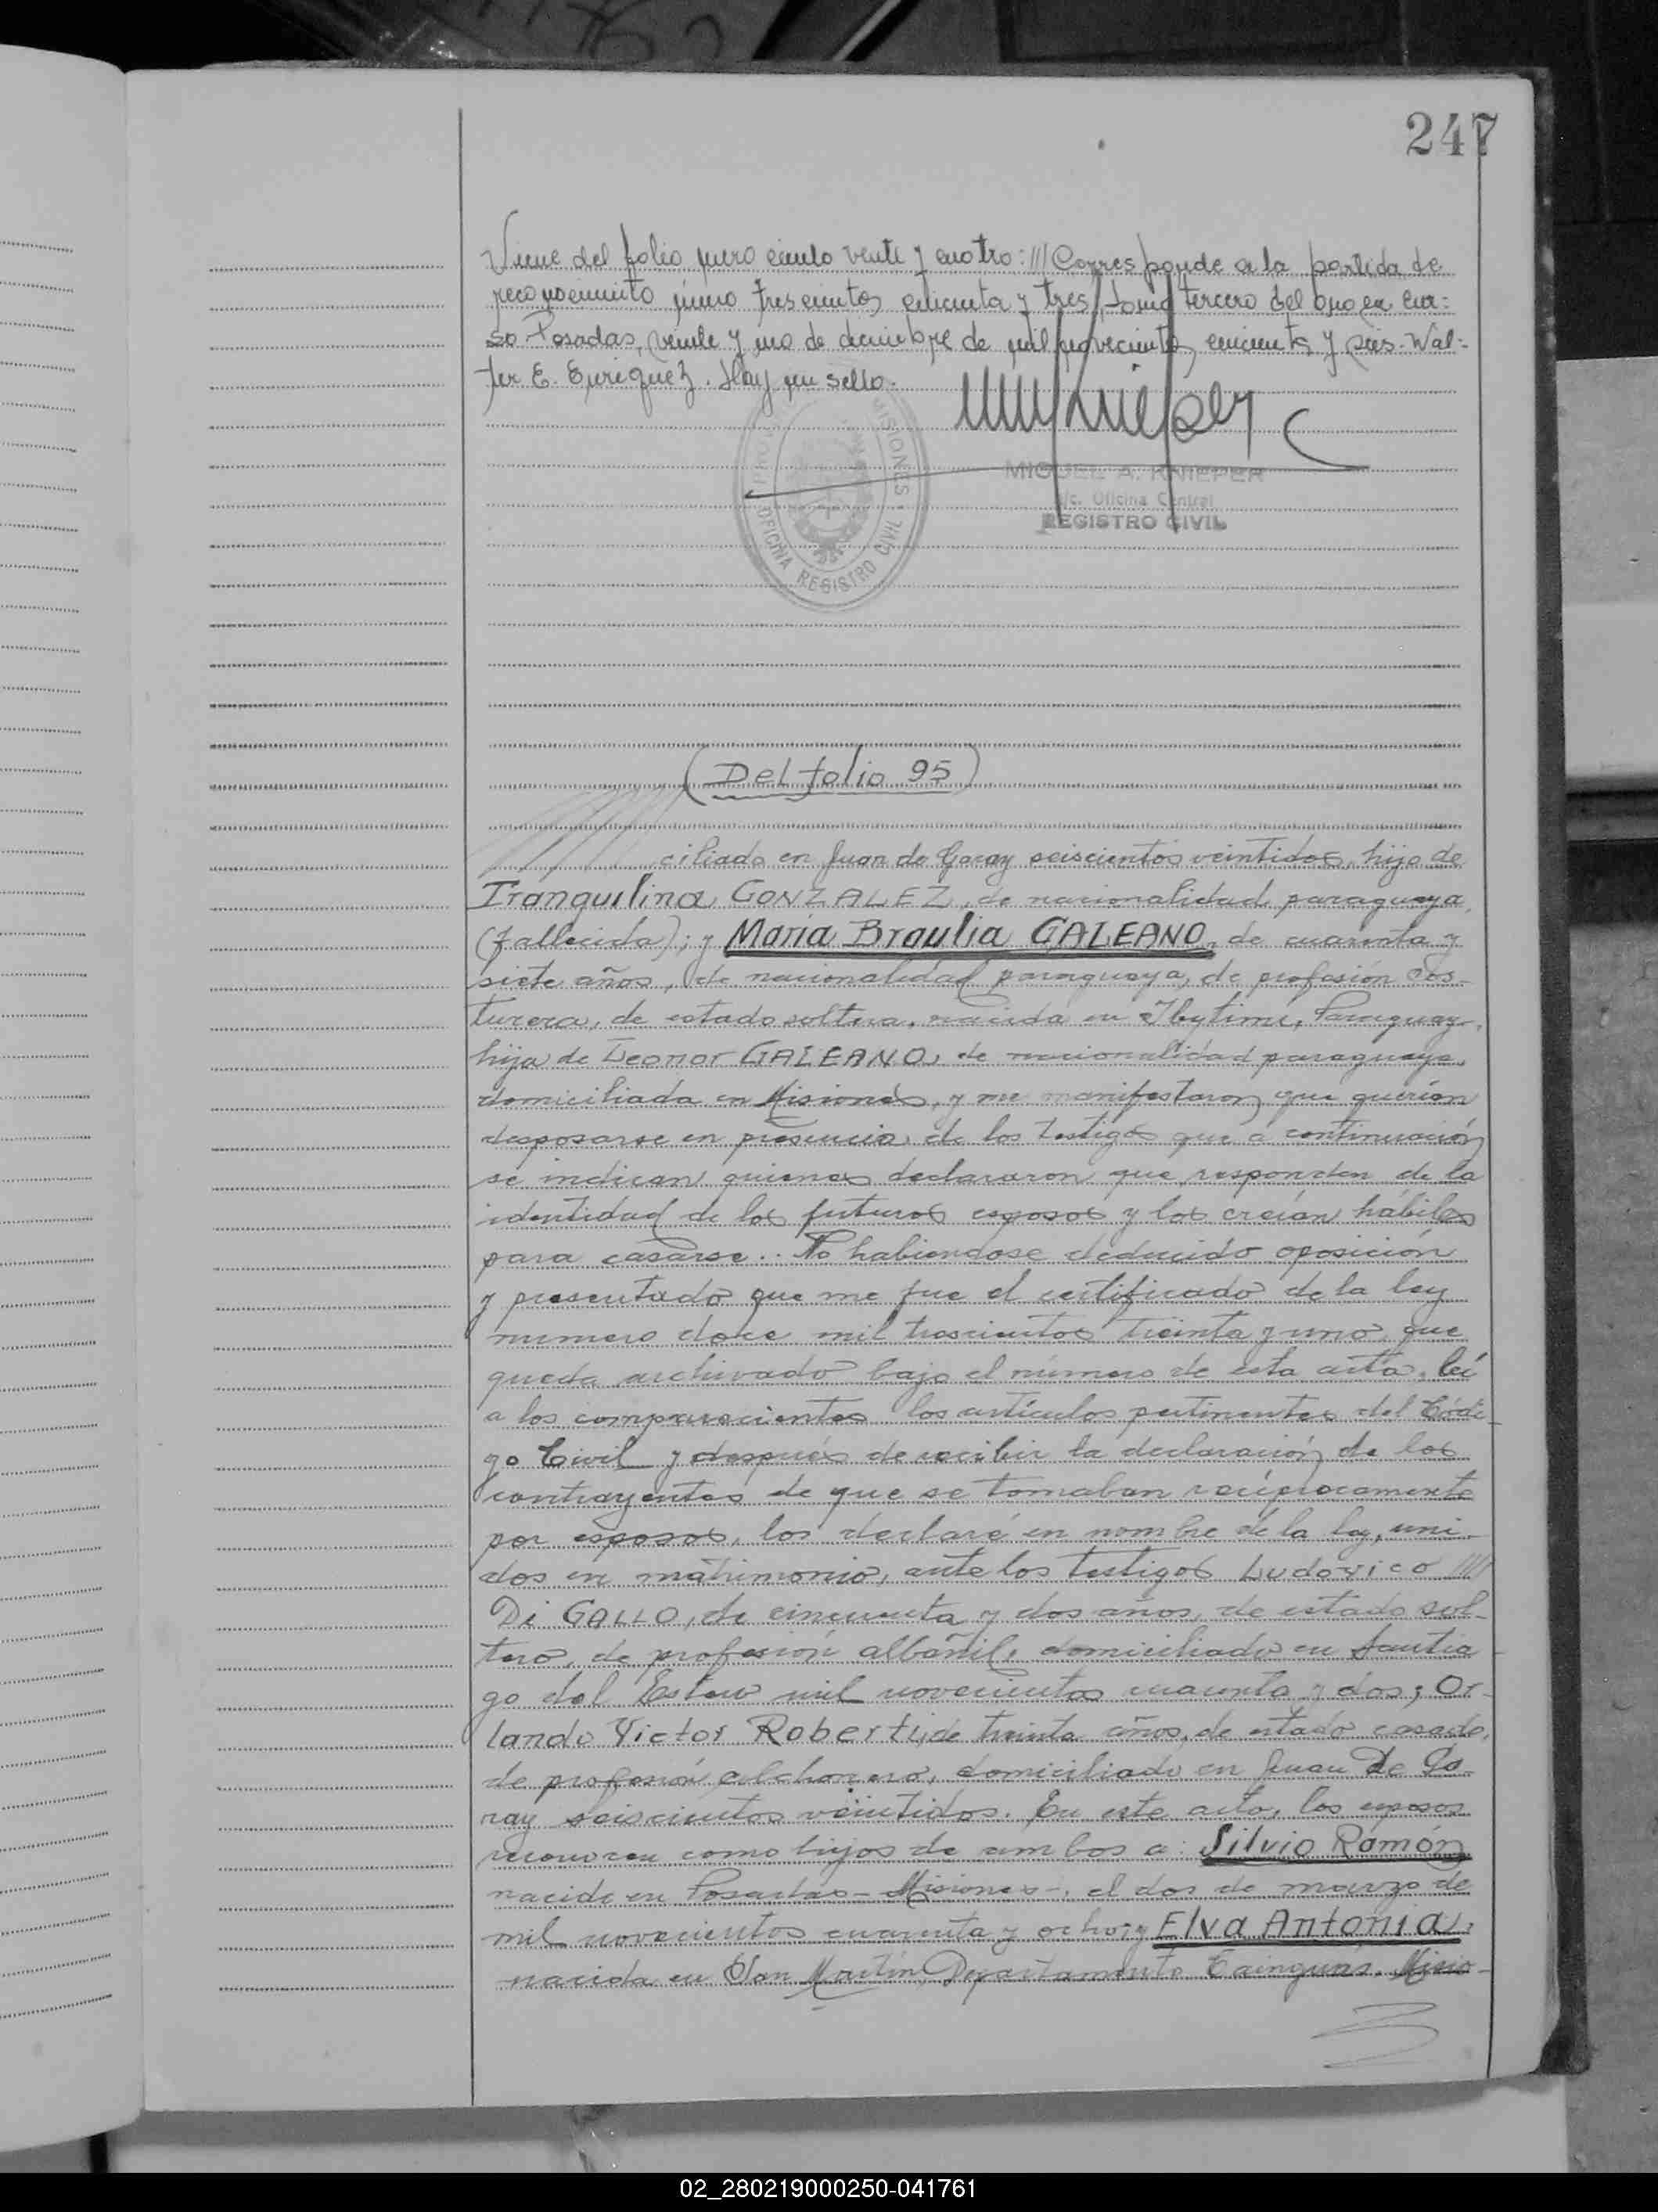 247
Viene del folio número ciento veinte y cuatro: /// Corresponde a la partida de
reconocimiento número trescientos cincuenta y tres, tomo tercero del año en cur-
so Posadas, veinte y uno de diciembre de mil novecientos cincuenta y seis. Wal-
ter E. Enriquez. Hay un sello.
PROVINCIA MISIONES
OFICINA REGISTRO CIVIL
MIGUEL A. KNIEPER
a/c. Oficina Central
REGISTRO CIVIL
(Del folio 95)
ciliado en Juan de Garay seiscientos veintidos, hijo de
Tranquilina GONZALEZ, de nacionalidad paraguaya
(fallecida); y María Braulia GALEANO, de cuarenta y
siete años, de nacionalidad paraguaya, de profesión cos-
turera, de estado soltera, nacida en Ibytimi, Paraguay,
hija de Leonor GALEANO, de nacionalidad paraguaya,
domiciliada en Misiones, y me manifestaron que querían
desposarse en presencia de los testigos que a continuación
se indican quienes declararon que responden de la
identidad de los futuros esposos y los creían hábiles
para casarse.. No habiendose deducido oposición
y presentado que me fue el certificado de la ley
numero doce mil trescientos treinta y uno que
queda archivado bajo el número de esta acta, leí
a los comparecientes los artículos pertinentes del Códi-
go Civil y después de recibir la declaración de los
contrayentes de que se tomaban recíprocamente
por esposos, los declaré en nombre de la ley, uni-
dos en matrimonio, ante los testigos Ludovico ////
Di GALLO, de cincuenta y dos años, de estado sol-
tero, de profesión albañil, domiciliado en Santia-
go del Estero mil novecientos cuarenta y dos; Or-
lando Victor Roberti, de treinta años, de estado casado,
de profesión colchonero, domiciliado en Juan De Ga-
ray seiscientos veintidos. En este acto, los esposos
reconocen como hijos de ambos a: Silvio Ramón,
nacido en Posadas - Misiones -, el dos de marzo de
mil novecientos cuarenta y ocho; y Elva Antonia,
nacida en San Martín, Departamento Cainguás, Misio-
02_280219000250-041761